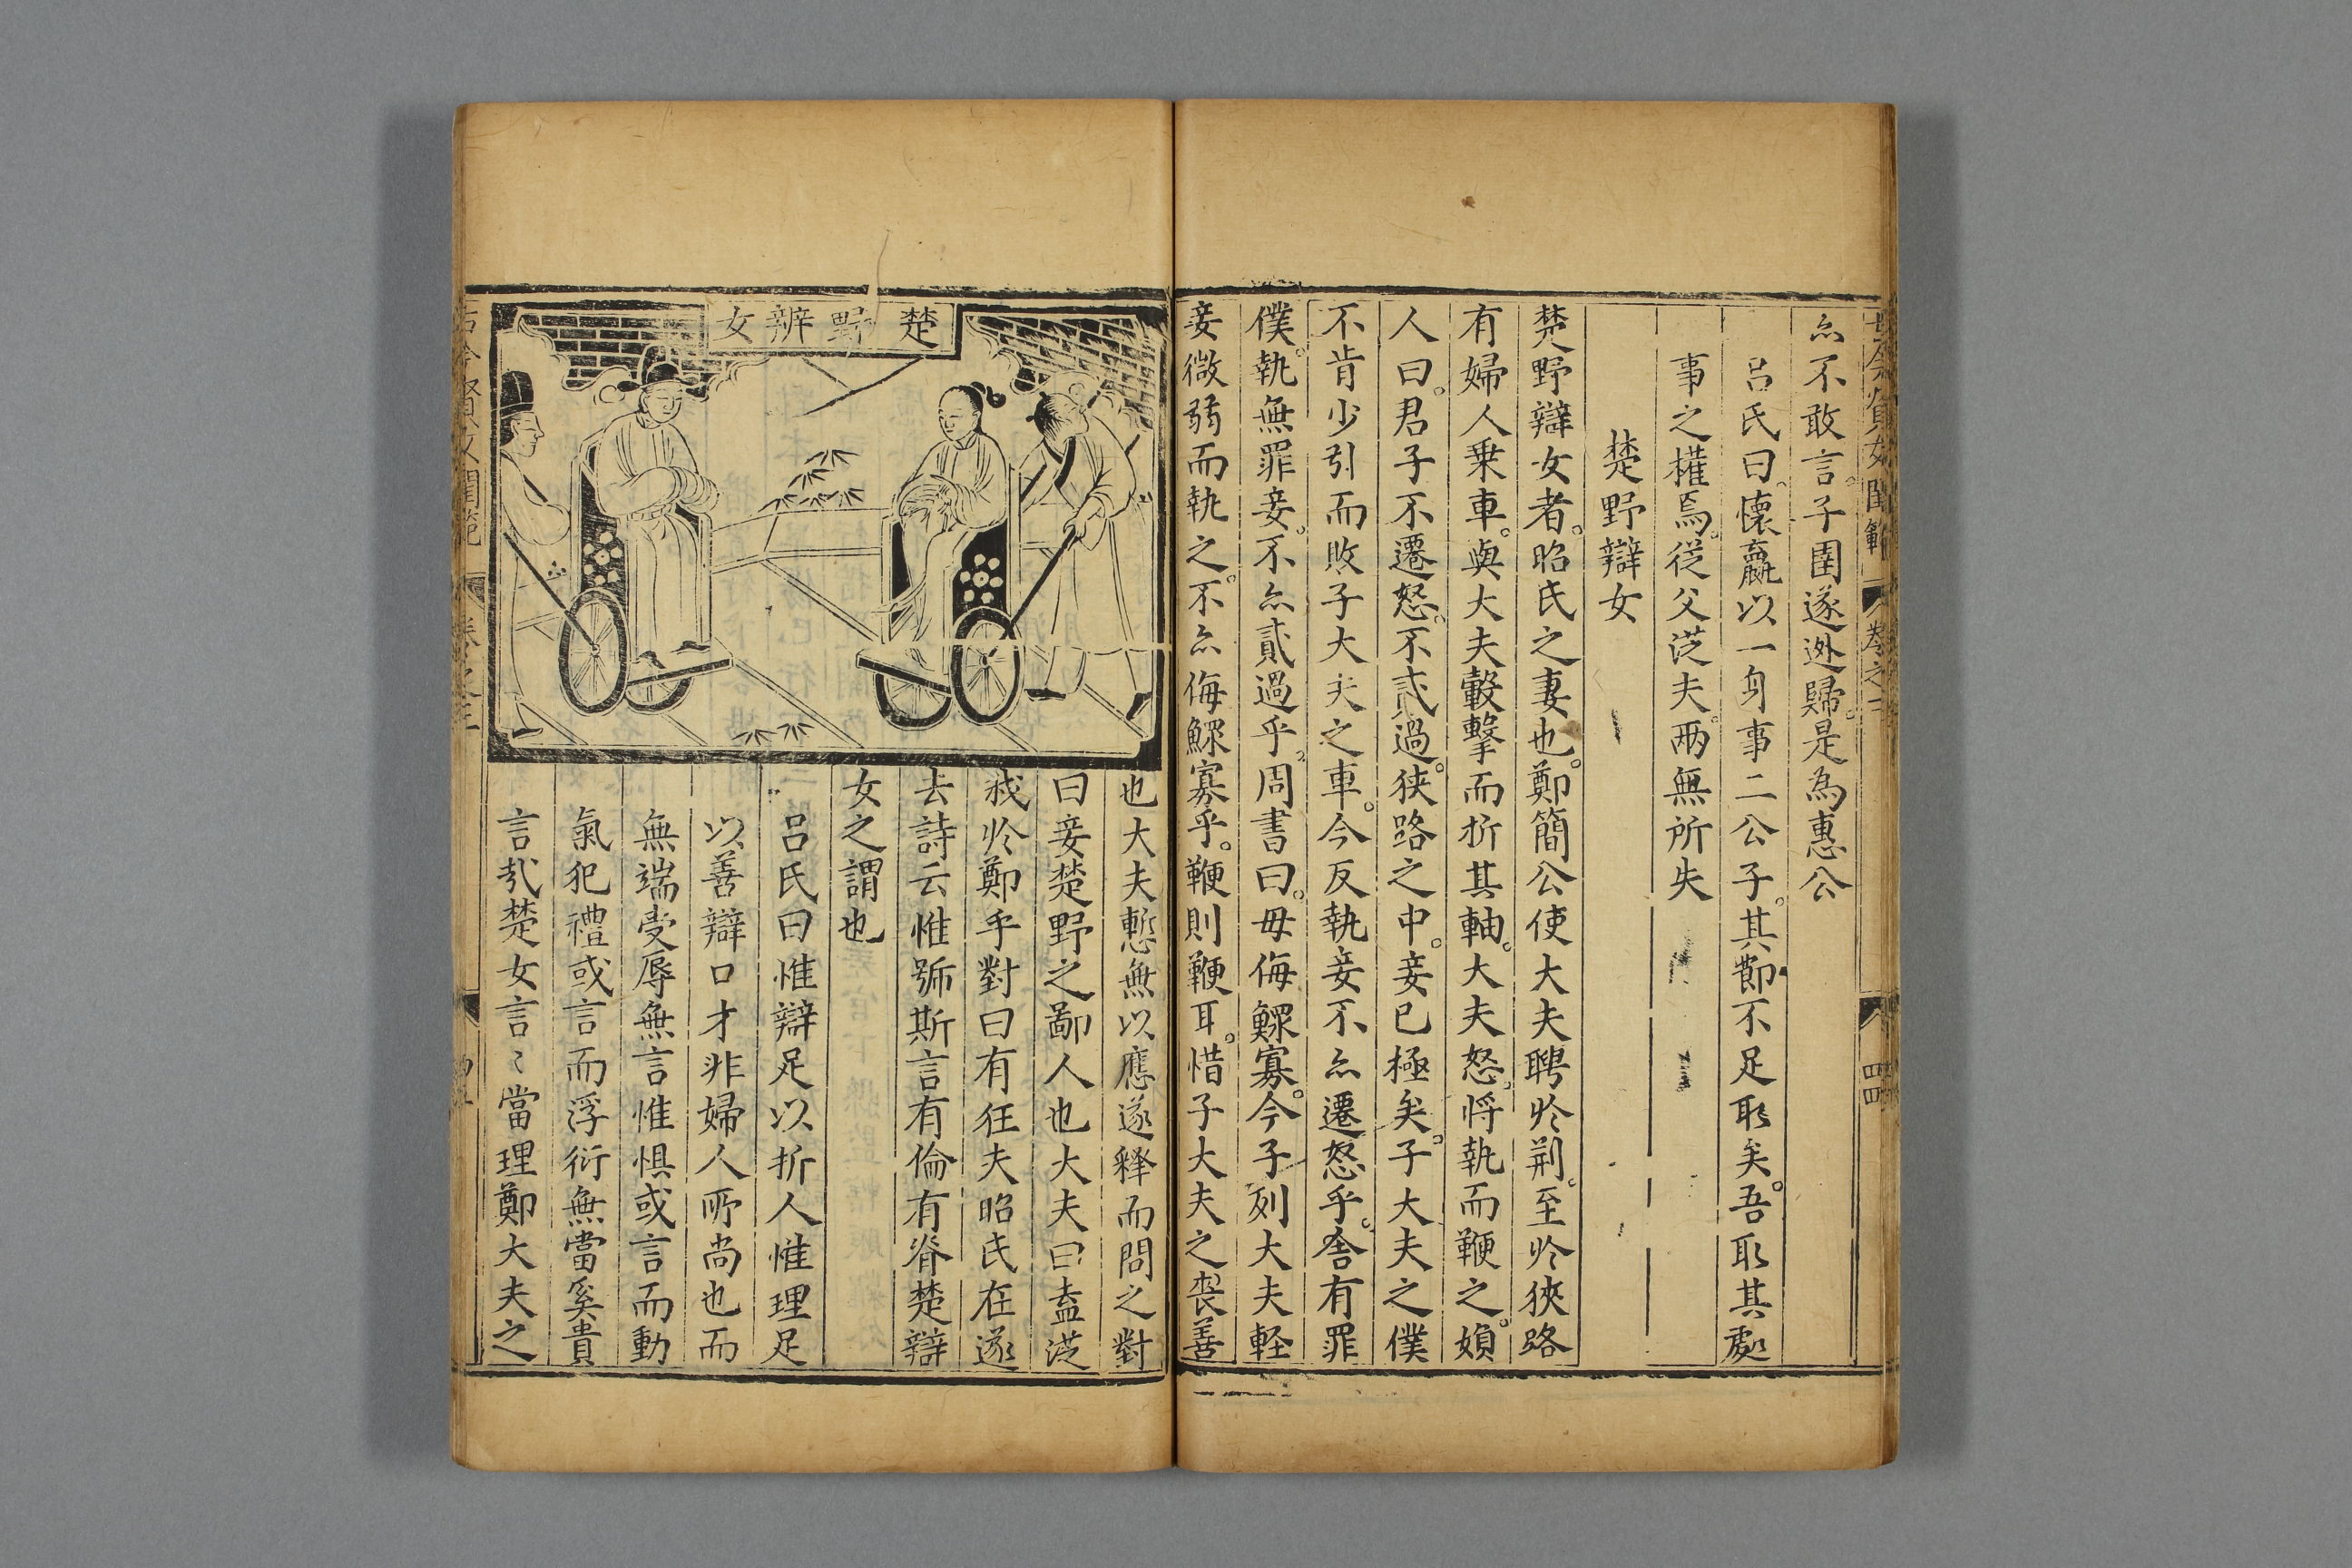 古今賢女閨範 卷之三 四四
亦不敢言子圉遂逃歸是為惠公
呂氏曰懷嬴以一身事二公子其節不足取矣吾取其處
事之權焉從父從夫兩無所失
楚野辯女
楚野辯女者昭氏之妻也鄭簡公使大夫聘於荊至於狹路
有婦人乗車與大夫轂擊而折其軸大夫怒將執而鞭之婦
人曰君子不遷怒不貳過狹路之中妾已極矣子大夫之僕
不肯少引而敗子大夫之車今反執妾不亦遷怒乎舍有罪
僕執無罪妾不亦貳過乎周書曰毋侮鰥寡今子列大夫軽
妾微弱而執之不亦侮鰥寡乎鞭則鞭耳惜子大夫之喪善
楚野辨女
也大夫慙無以應遂釋而問之對
曰妾楚野之鄙人也大夫曰盍從
我於鄭乎對曰有狂夫昭氏在遂
去詩云惟號斯言有倫有脊楚辯
女之謂也
呂氏曰惟辯足以折人惟理足
以善辯口才非婦人所尚也而
無端受辱無言惟惧或言而動
氣犯禮或言而浮衍無當奚貴
言哉楚女言〻當理鄭大夫之
古今賢女閨範 卷之三